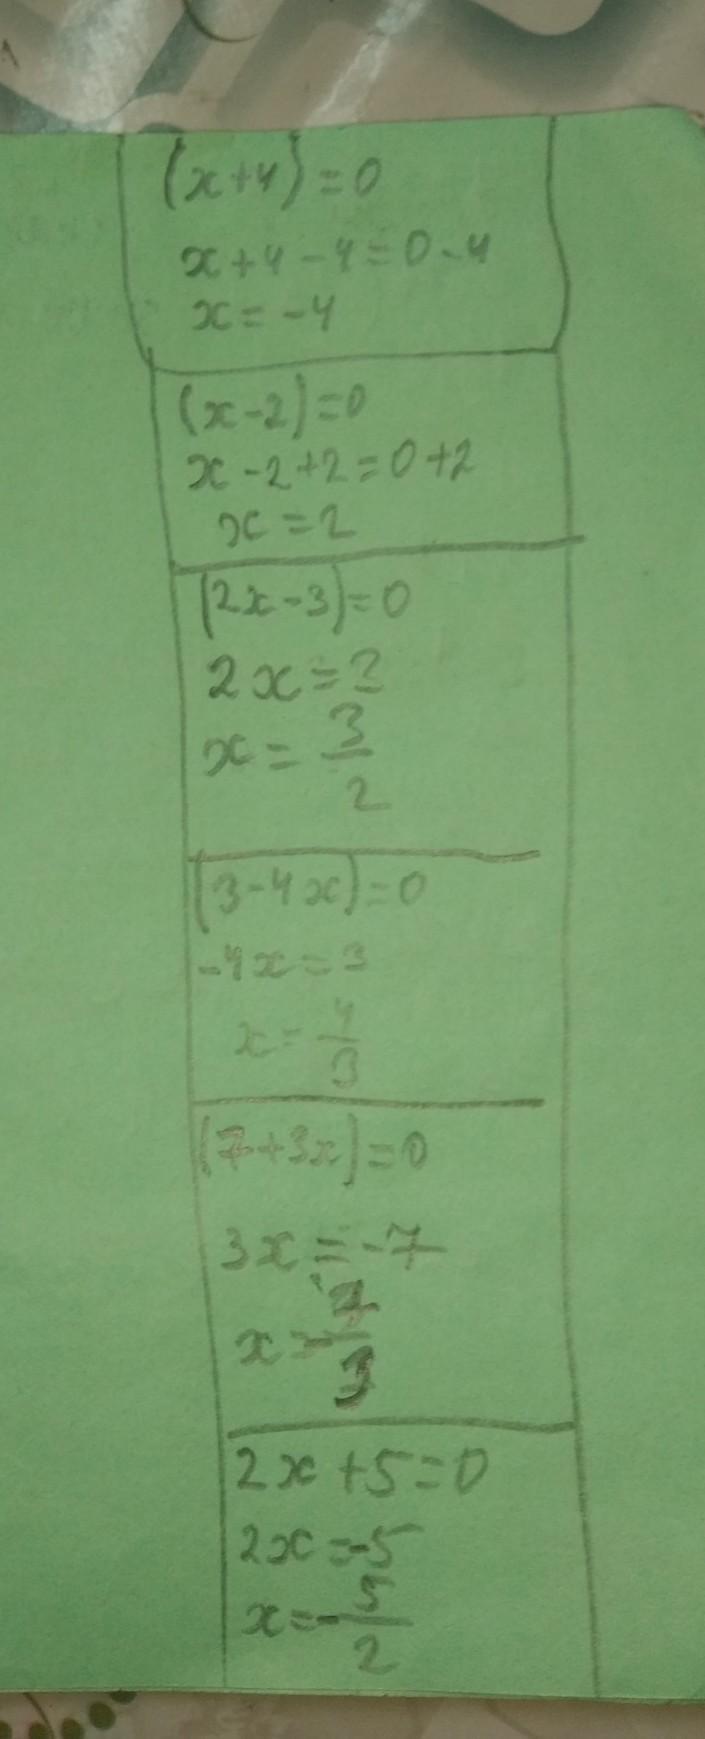 (x+4)=0
x+4-4=0-4
x=-4
(x-2)=0
x-2+2=0+2
x=2
(2x-3)=0
2x=3
x=3/2
(3-4x)=0
-4x=3
x=4/3
(7+3x)=0
3x=-7
x=-7/3
2x+5=0
2x=-5
x=-5/2